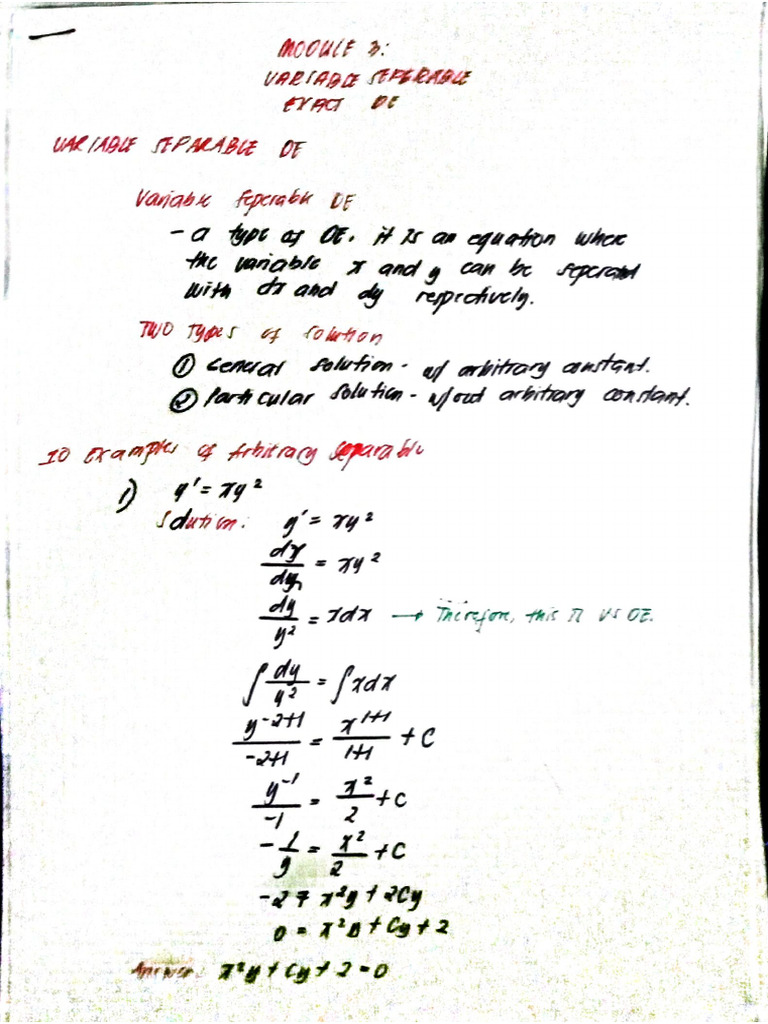 MODULE 3:
VARIABLE SEPERABLE
EXACT DE
VARIABLE SEPARABLE DE
Variable Seperable DE
- a type of DE. it is an equation where
the variable x and y can be seperated
with dx and dy respectively.
TWO Types of solution
① General solution - w/ arbitrary constant.
② Particular solution - w/out arbitrary constant.
10 Examples of Arbitrary Separable
1) y' = xy²
Solution: y' = xy²
dy/dx = xy²
dy/y² = xdx → Therefore, this is VS DE.
∫ dy/y² = ∫ xdx
y^(-2+1)/(-2+1) = x^(1+1)/(1+1) + C
y⁻¹/-1 = x²/2 + C
- 1/y = x²/2 + C
-2 = x²y + 2Cy
0 = x²y + Cy + 2
Answer: x²y + Cy + 2 = 0